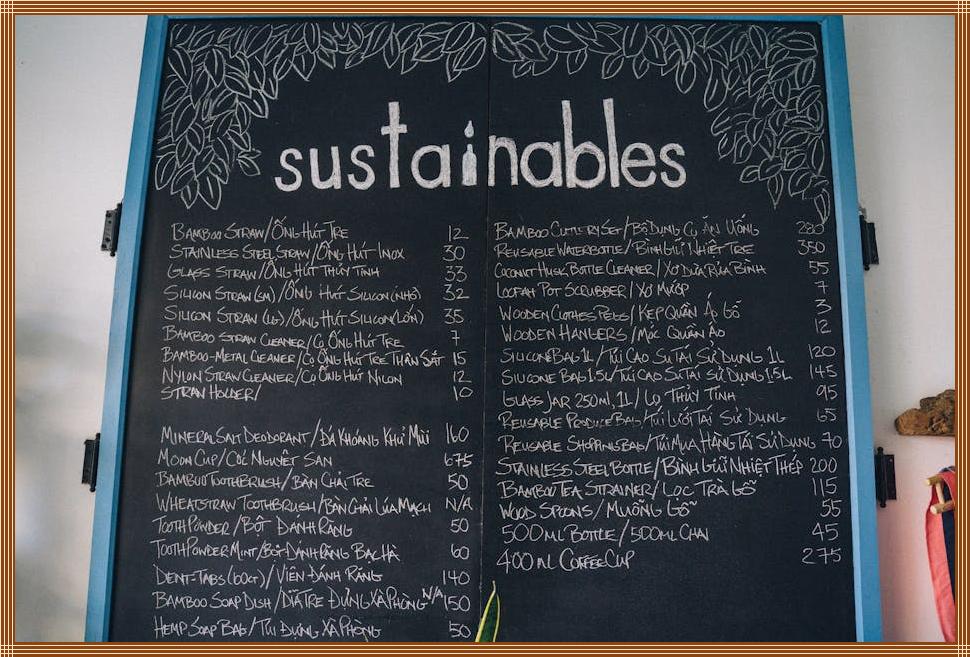 sustainables
Bamboo Straw/Ống Hút Tre 12
Stainless Steel Straw/Ống Hút Inox 30
Glass Straw/Ống Hút Thủy Tinh 33
Silicon Straw (sm)/Ống Hút Silicon (nhỏ) 32
Silicon Straw (lg)/Ống Hút Silicon (lớn) 35
Bamboo Straw Cleaner/Cọ Ống Hút Tre 7
Bamboo-Metal Cleaner/Cọ Ống Hút Tre Thân Sắt 15
Nylon Straw Cleaner/Cọ Ống Hút Nilon 12
Straw Holder/ 10
Mineral Salt Deodorant/Đá Khoáng Khử Mùi 160
Moon Cup/Cốc Nguyệt San 675
Bamboo Toothbrush/Bàn Chải Tre 50
Wheatstraw Toothbrush/Bàn Chải Lúa Mạch N/A
Tooth Powder/Bột Đánh Răng 50
Tooth Powder Mint/Bột Đánh Răng Bạc Hà 60
Dent-Tabs (60ct)/Viên Đánh Răng 140
Bamboo Soap Dish/Dĩa Tre Đựng Xà Phòng N/A 150
Hemp Soap Bag/Túi Đựng Xà Phòng 50
Bamboo Cutlery Set/Bộ Dụng Cụ Ăn Uống 280
Reusable Waterbottle/Bình Giữ Nhiệt Tre 350
Coconut Husk Bottle Cleaner/Xơ Dừa Rửa Bình 55
Loofah Pot Scrubber/Xơ Mướp 7
Wooden Clothes Pegs/Kẹp Quần Áo Gỗ 3
Wooden Hangers/Móc Quần Áo 12
Silicone Bag 1L/Túi Cao Su Tái Sử Dụng 1L 120
Silicone Bag 1.5L/Túi Cao Su Tái Sử Dụng 1.5L 145
Glass Jar 250ml, 1L/Lọ Thủy Tinh 95
Reusable Produce Bag/Túi Lưới Tái Sử Dụng 65
Reusable Shopping Bag/Túi Mua Hàng Tái Sử Dụng 70
Stainless Steel Bottle/Bình Giữ Nhiệt Thép 200
Bamboo Tea Strainer/Lọc Trà Gỗ 115
Wood Spoons/Muỗng Gỗ 55
500ml Bottle/500ml Chai 45
400ml Coffee Cup 275